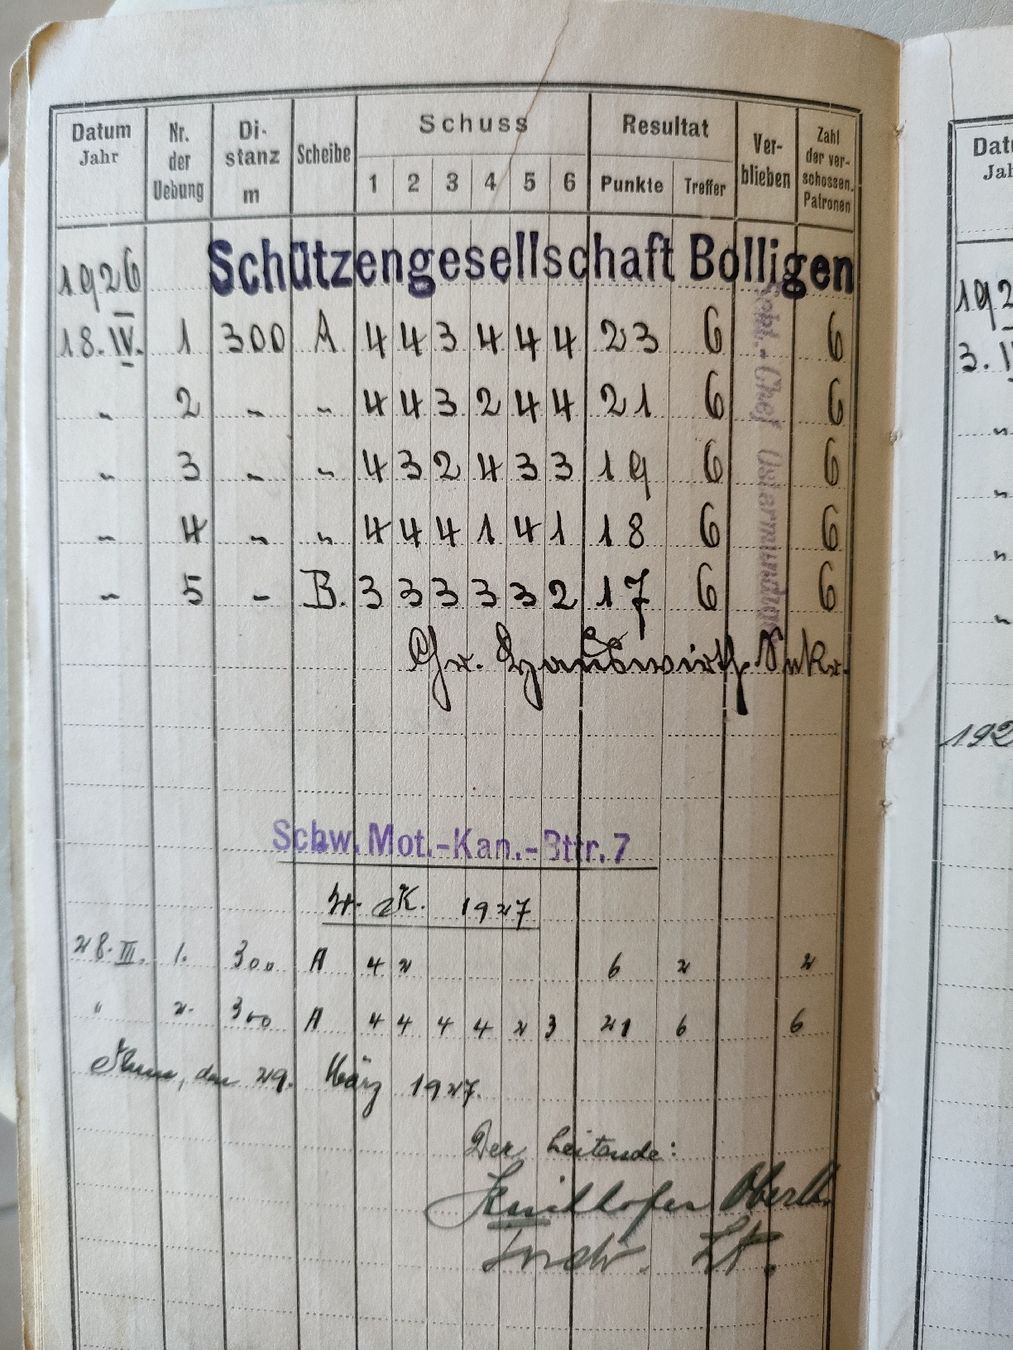 Datum Jahr Nr. der Uebung Di- stanz m Scheibe Schuss 1 2 3 4 5 6 Resultat Punkte Treffer Ver- blieben Zahl der ver- schossen. Patronen
1926 Schützengesellschaft Bolligen
18. IV. 1 300 A 4 4 3 4 4 4 23 6 6
" 2 " " 4 4 3 2 4 4 21 6 6
" 3 " " 4 3 2 4 3 3 19 6 6
" 4 " " 4 4 4 1 4 1 18 6 6
" 5 " B. 3 3 3 3 3 2 17 6 6
Sekt.-Chef Ostermundigen
Gr. Hauswirth Sekr.
Schw. Mot.-Kan.-Bttr. 7
W. K. 1927
28. III. 1. 300 A 4 2 6 2 2
" 2. 300 A 4 4 4 4 2 3 21 6 6
Thun, den 29. März 1927.
Der Leitende:
Oberlt.
Lt.
Datu
Jah
192
3. I
"
"
"
"
192